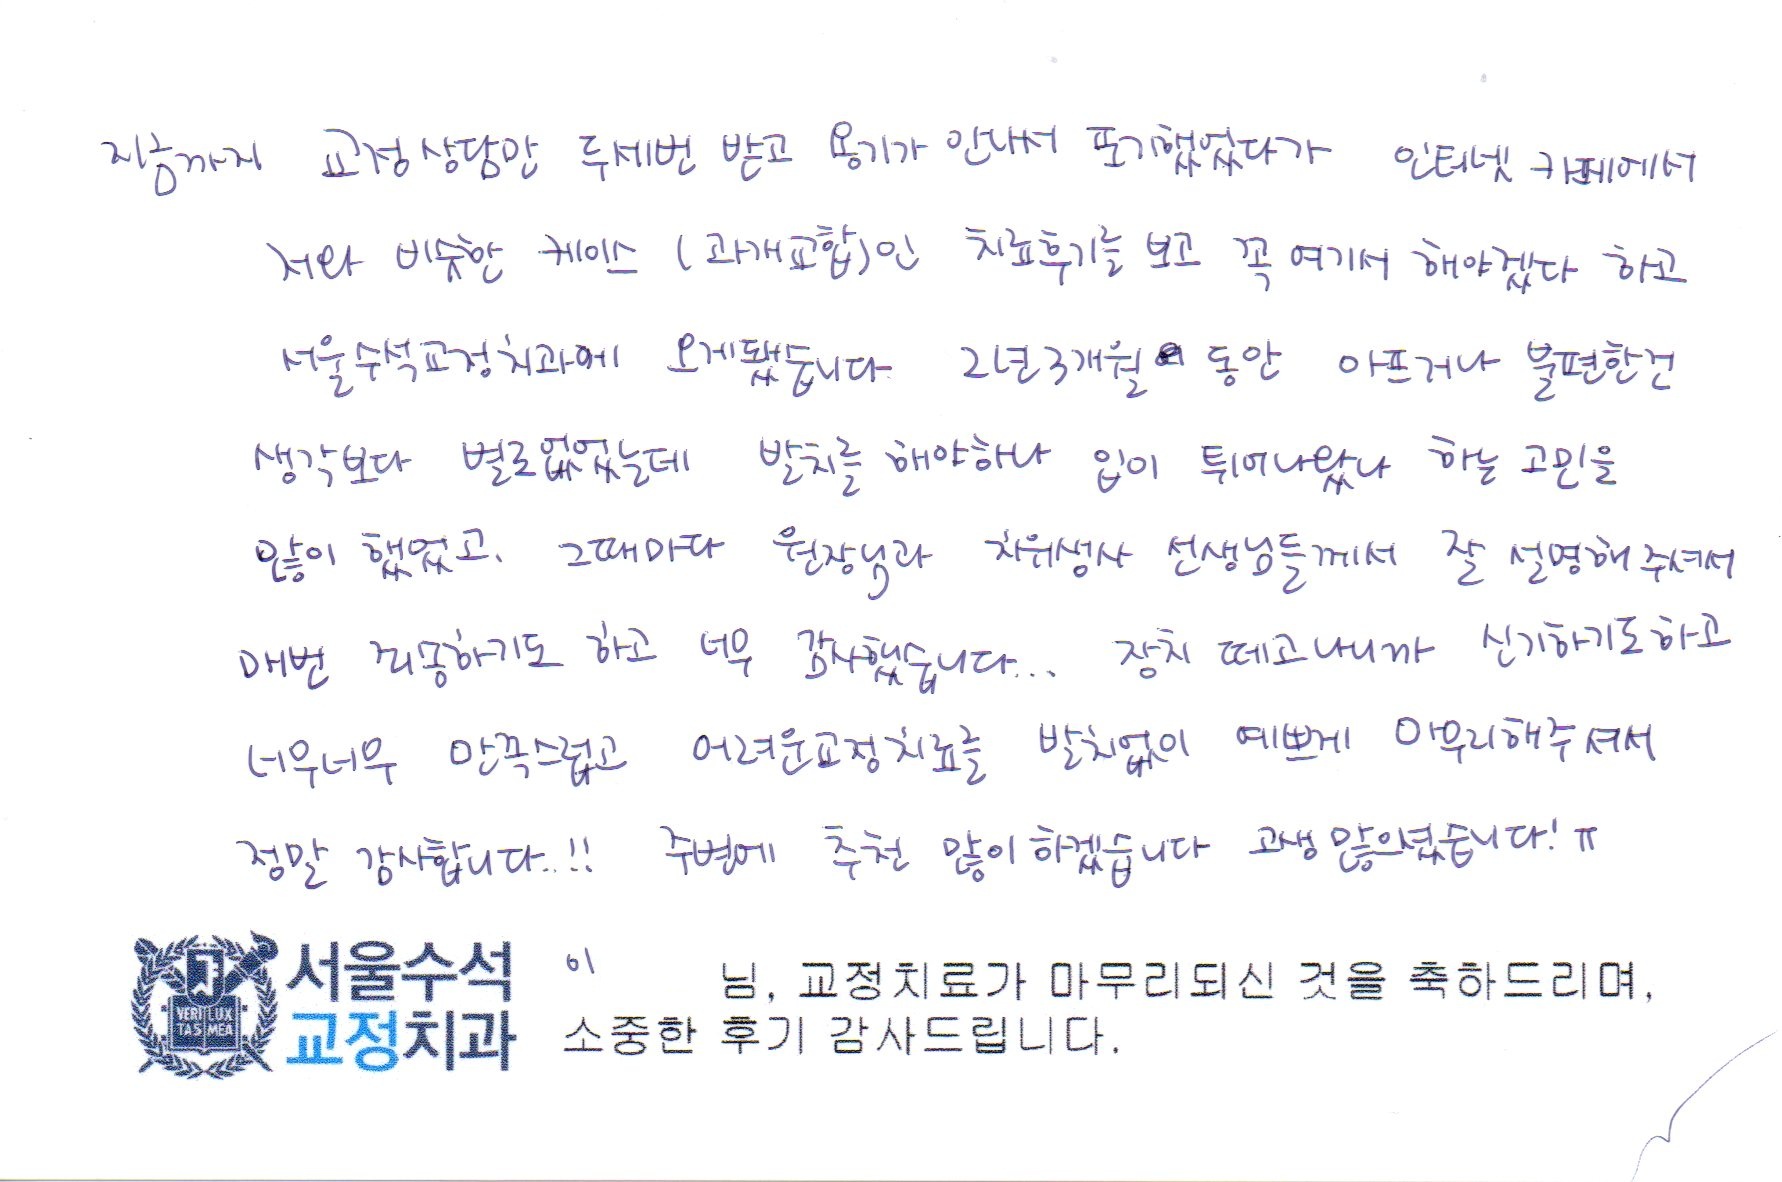 지금까지 교정상담만 두세번 받고 용기가 안나서 포기했었다가 인터넷 카페에서
저와 비슷한 케이스 (과개교합)인 치료후기를 보고 꼭 여기서 해야겠다 하고
서울수석교정치과에 오게됐습니다. 2년 3개월 동안 아프거나 불편한건
생각보다 별로없었는데 발치를 해야하나 입이 튀어나왔나 하는 고민을
많이 했었고. 그때마다 원장님과 치위생사 선생님들께서 잘 설명해주셔서
매번 죄송하기도 하고 너무 감사했습니다... 장치 떼고나니까 신기하기도하고
너무너무 만족스럽고 어려운교정치료를 발치없이 예쁘게 마무리해주셔서
정말 감사합니다..!! 주변에 추천 많이하겠습니다 고생 많으셨습니다! ㅠ
서울수석
교정치과
VERI LUX
TAS MEA
이 님, 교정치료가 마무리되신 것을 축하드리며,
소중한 후기 감사드립니다.